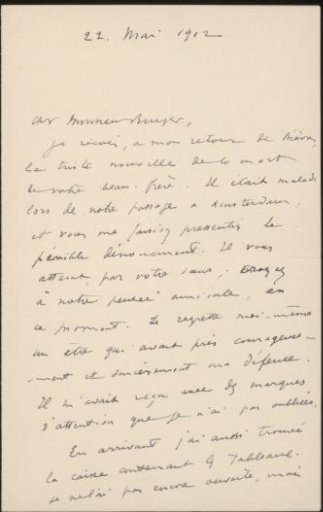 22. Mai 1912
Cher Monsieur
je reçois, à mon retour de Bièvres,
la triste nouvelle de la mort
de votre beau-frère. Il était malade
lors de notre passage à Amsterdam,
et vous me faisiez pressentir le
pénible dénouement. Il vous
atteint, par votre sœur,
à notre pensée amicale, en
ce moment. Je regrette moi-même
un être qui avait pris courageuse-
-ment et sincèrement ma défense.
Il m'avait reçu avec des marques
d'attention que je n'ai pas oubliées.
En arrivant j'ai aussi trouvé
la caisse contenant les Tableaux.
Je ne l'ai pas encore ouverte, mais